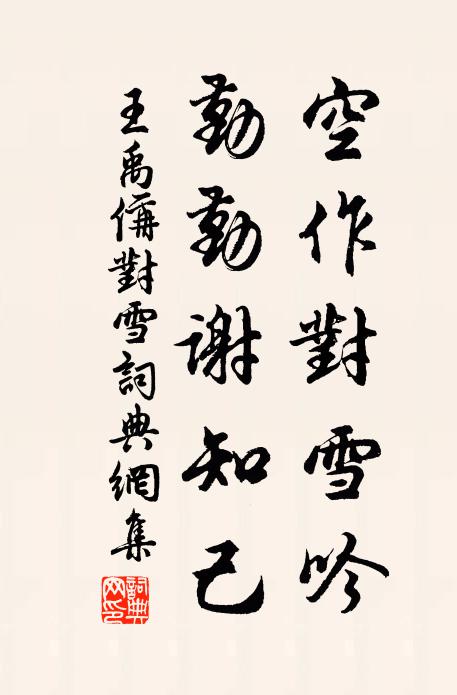 空作對雪吟
勤勤謝知己
王禹偁對雪詞典網集
詞典網印